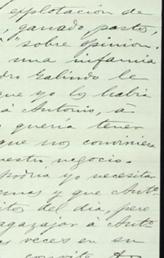 explotación de
, ganado pastos,
sobre opinion
una infamia
dro Galindo le
que yo los habia
á Antonio, á
queria tener
que nos convinier
uestro negocio.
podria yo necesitar
unas y que Ant
itos del dia, pero
agazajar á Anto
s veces en su